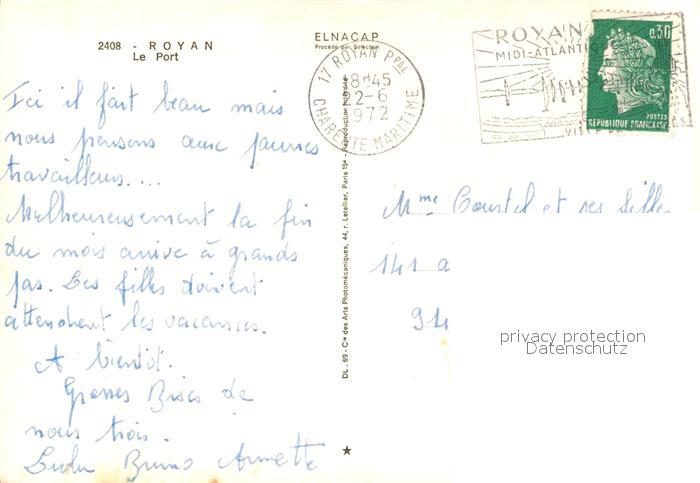 2408 - ROYAN
Le Port
ELNACAP
Procédé par Sélection
17 ROYAN Ppal
18H45
2-6
1972
CHARENTE MARITIME
ROYAN
MIDI-ATLANTIQ
0,30
POSTES
REPUBLIQUE FRANÇAISE
Ici il fait beau mais
nous pensons aux pauvres
travailleurs....
Malheureusement la fin
du mois arrive à grands
pas. Les filles doivent
attendent les vacances.
A bientôt.
Grosses Bises de
nous trois.
Lulu Bruno Annette
Mme Courtel et ses filles
141 a
94
privacy protection
Datenschutz
DL. 69 - Cie des Arts Photomécaniques, 44, r. Letellier, Paris 15e - Reproduction interdite